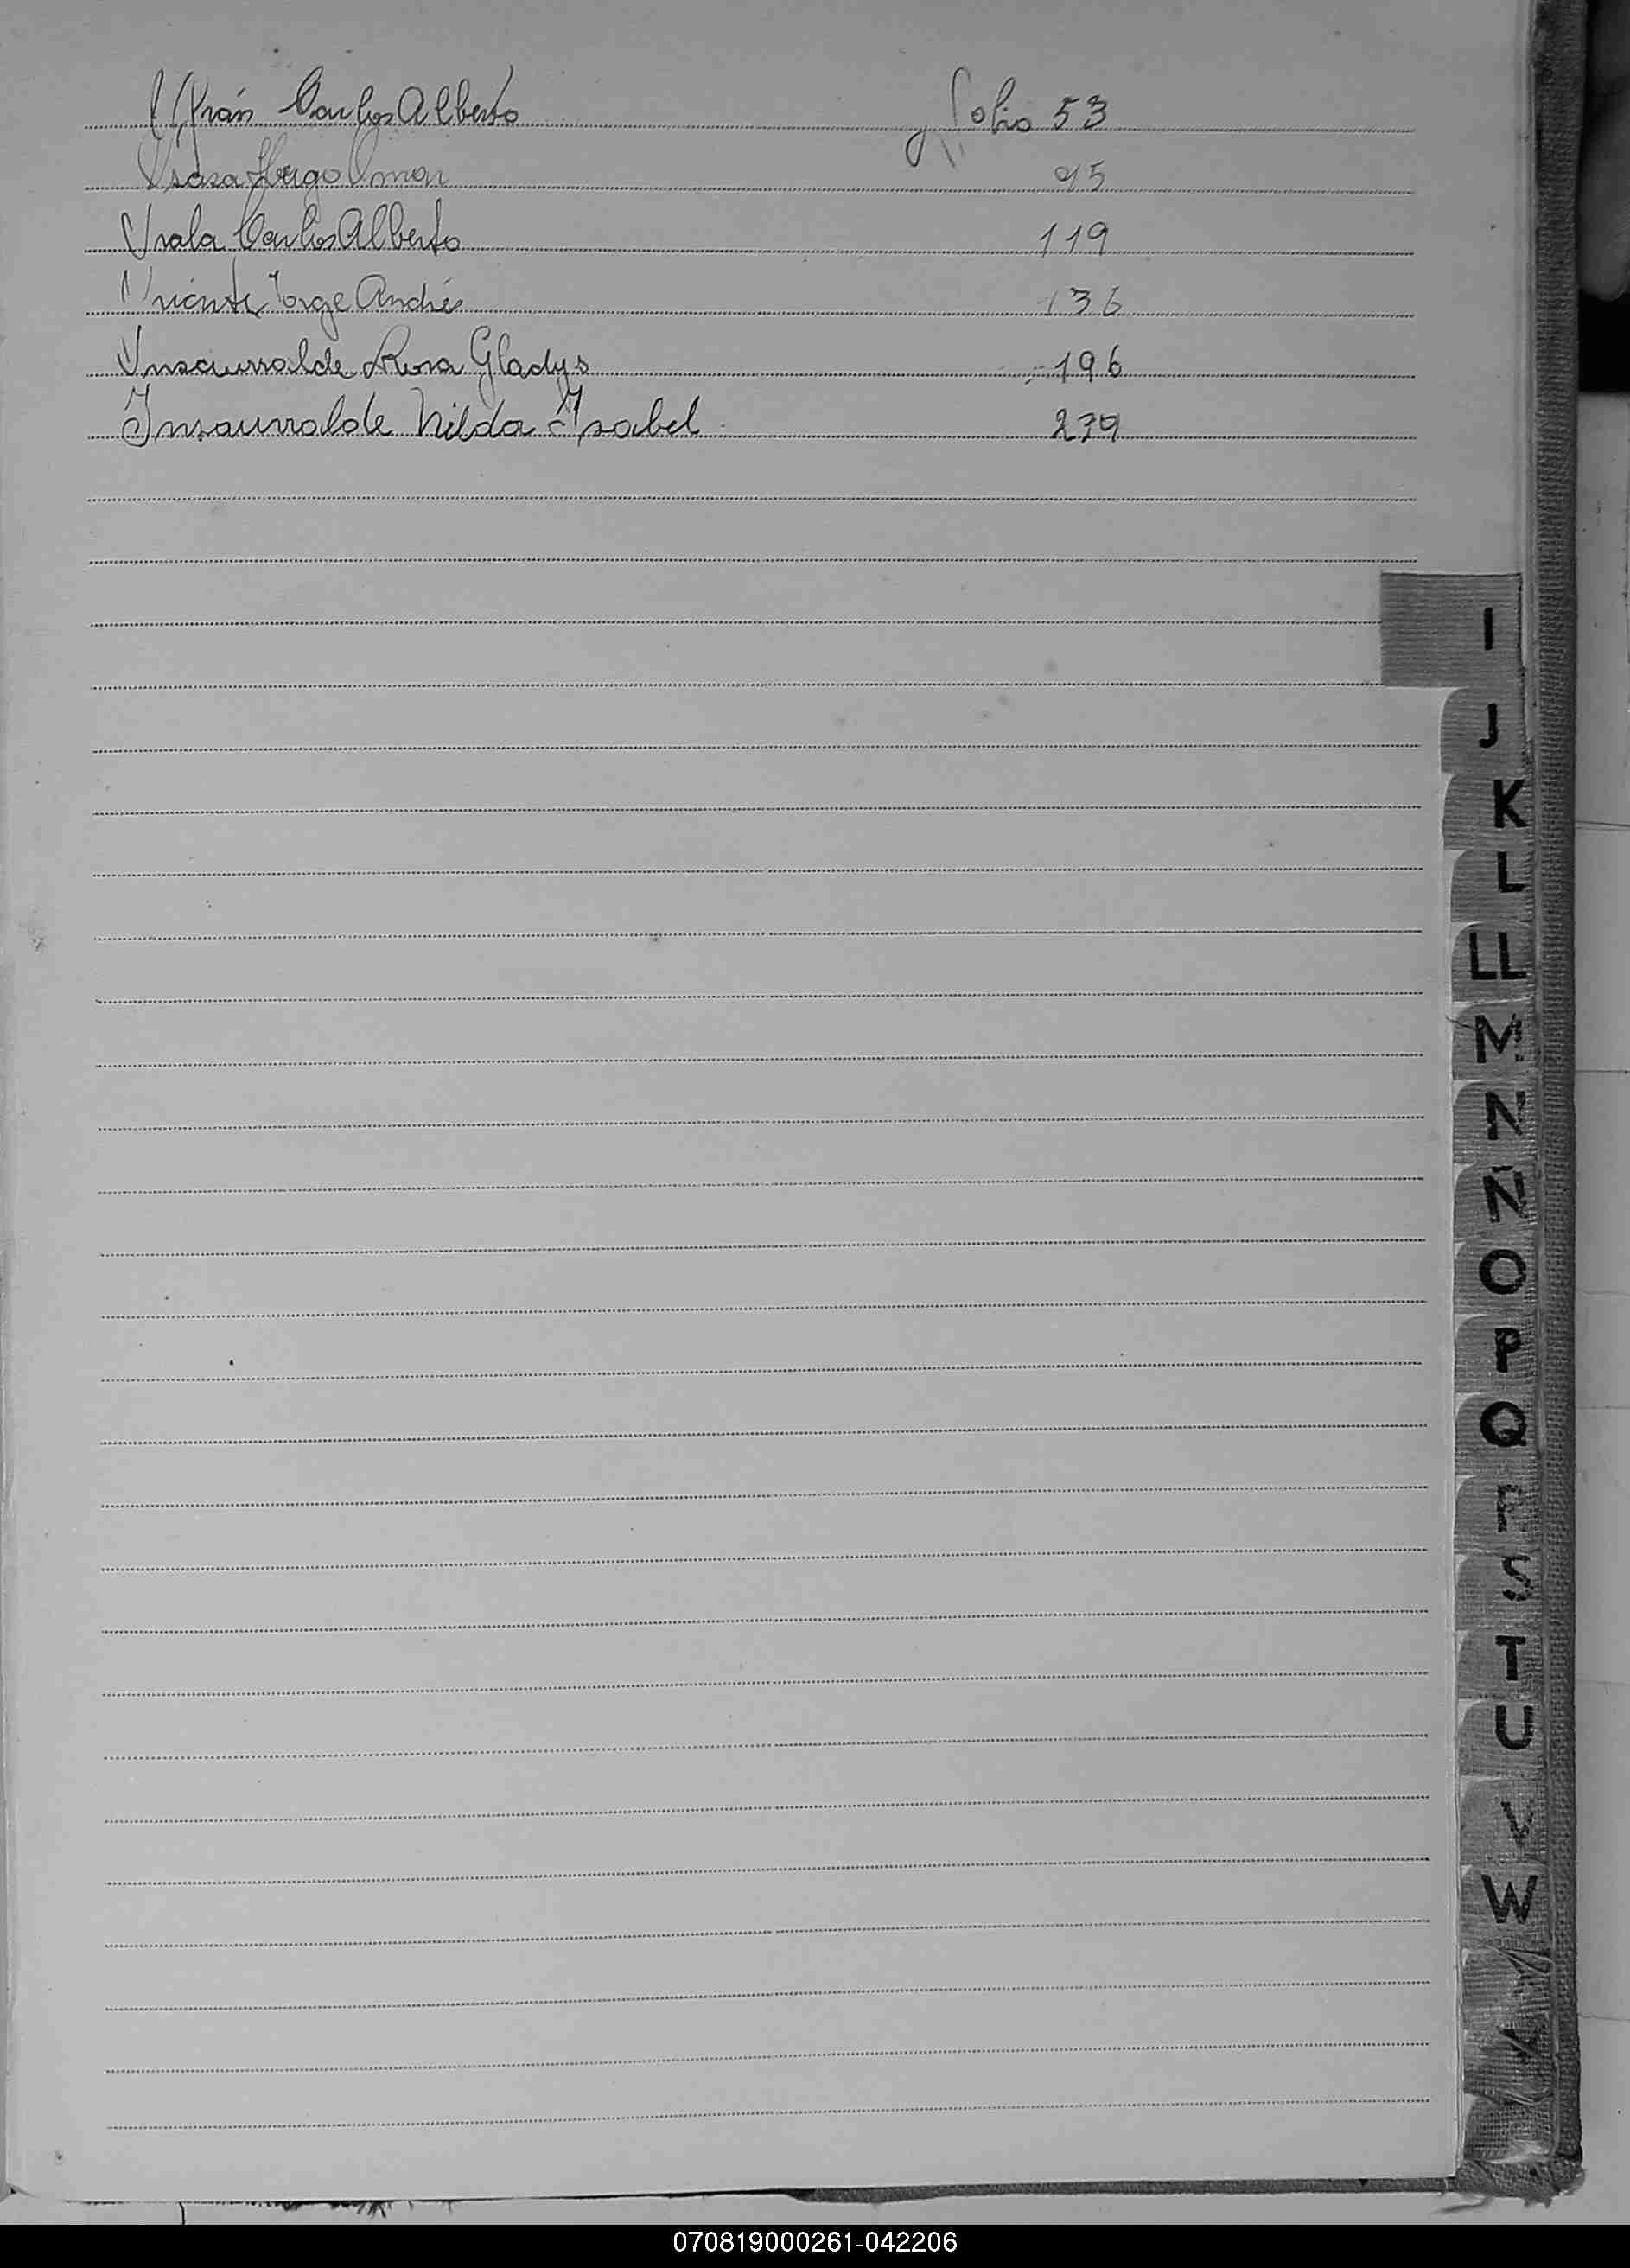 Carlos Alberto Folio 53
Hugo Omar 95
Irala Carlos Alberto 119
Jorge Andrés 136
Insaurralde Rosa Gladys 196
Insaurralde Nilda Isabel 239
I
J
K
L
LL
M
N
Ñ
O
P
Q
R
S
T
U
V
W
070819000261-042206